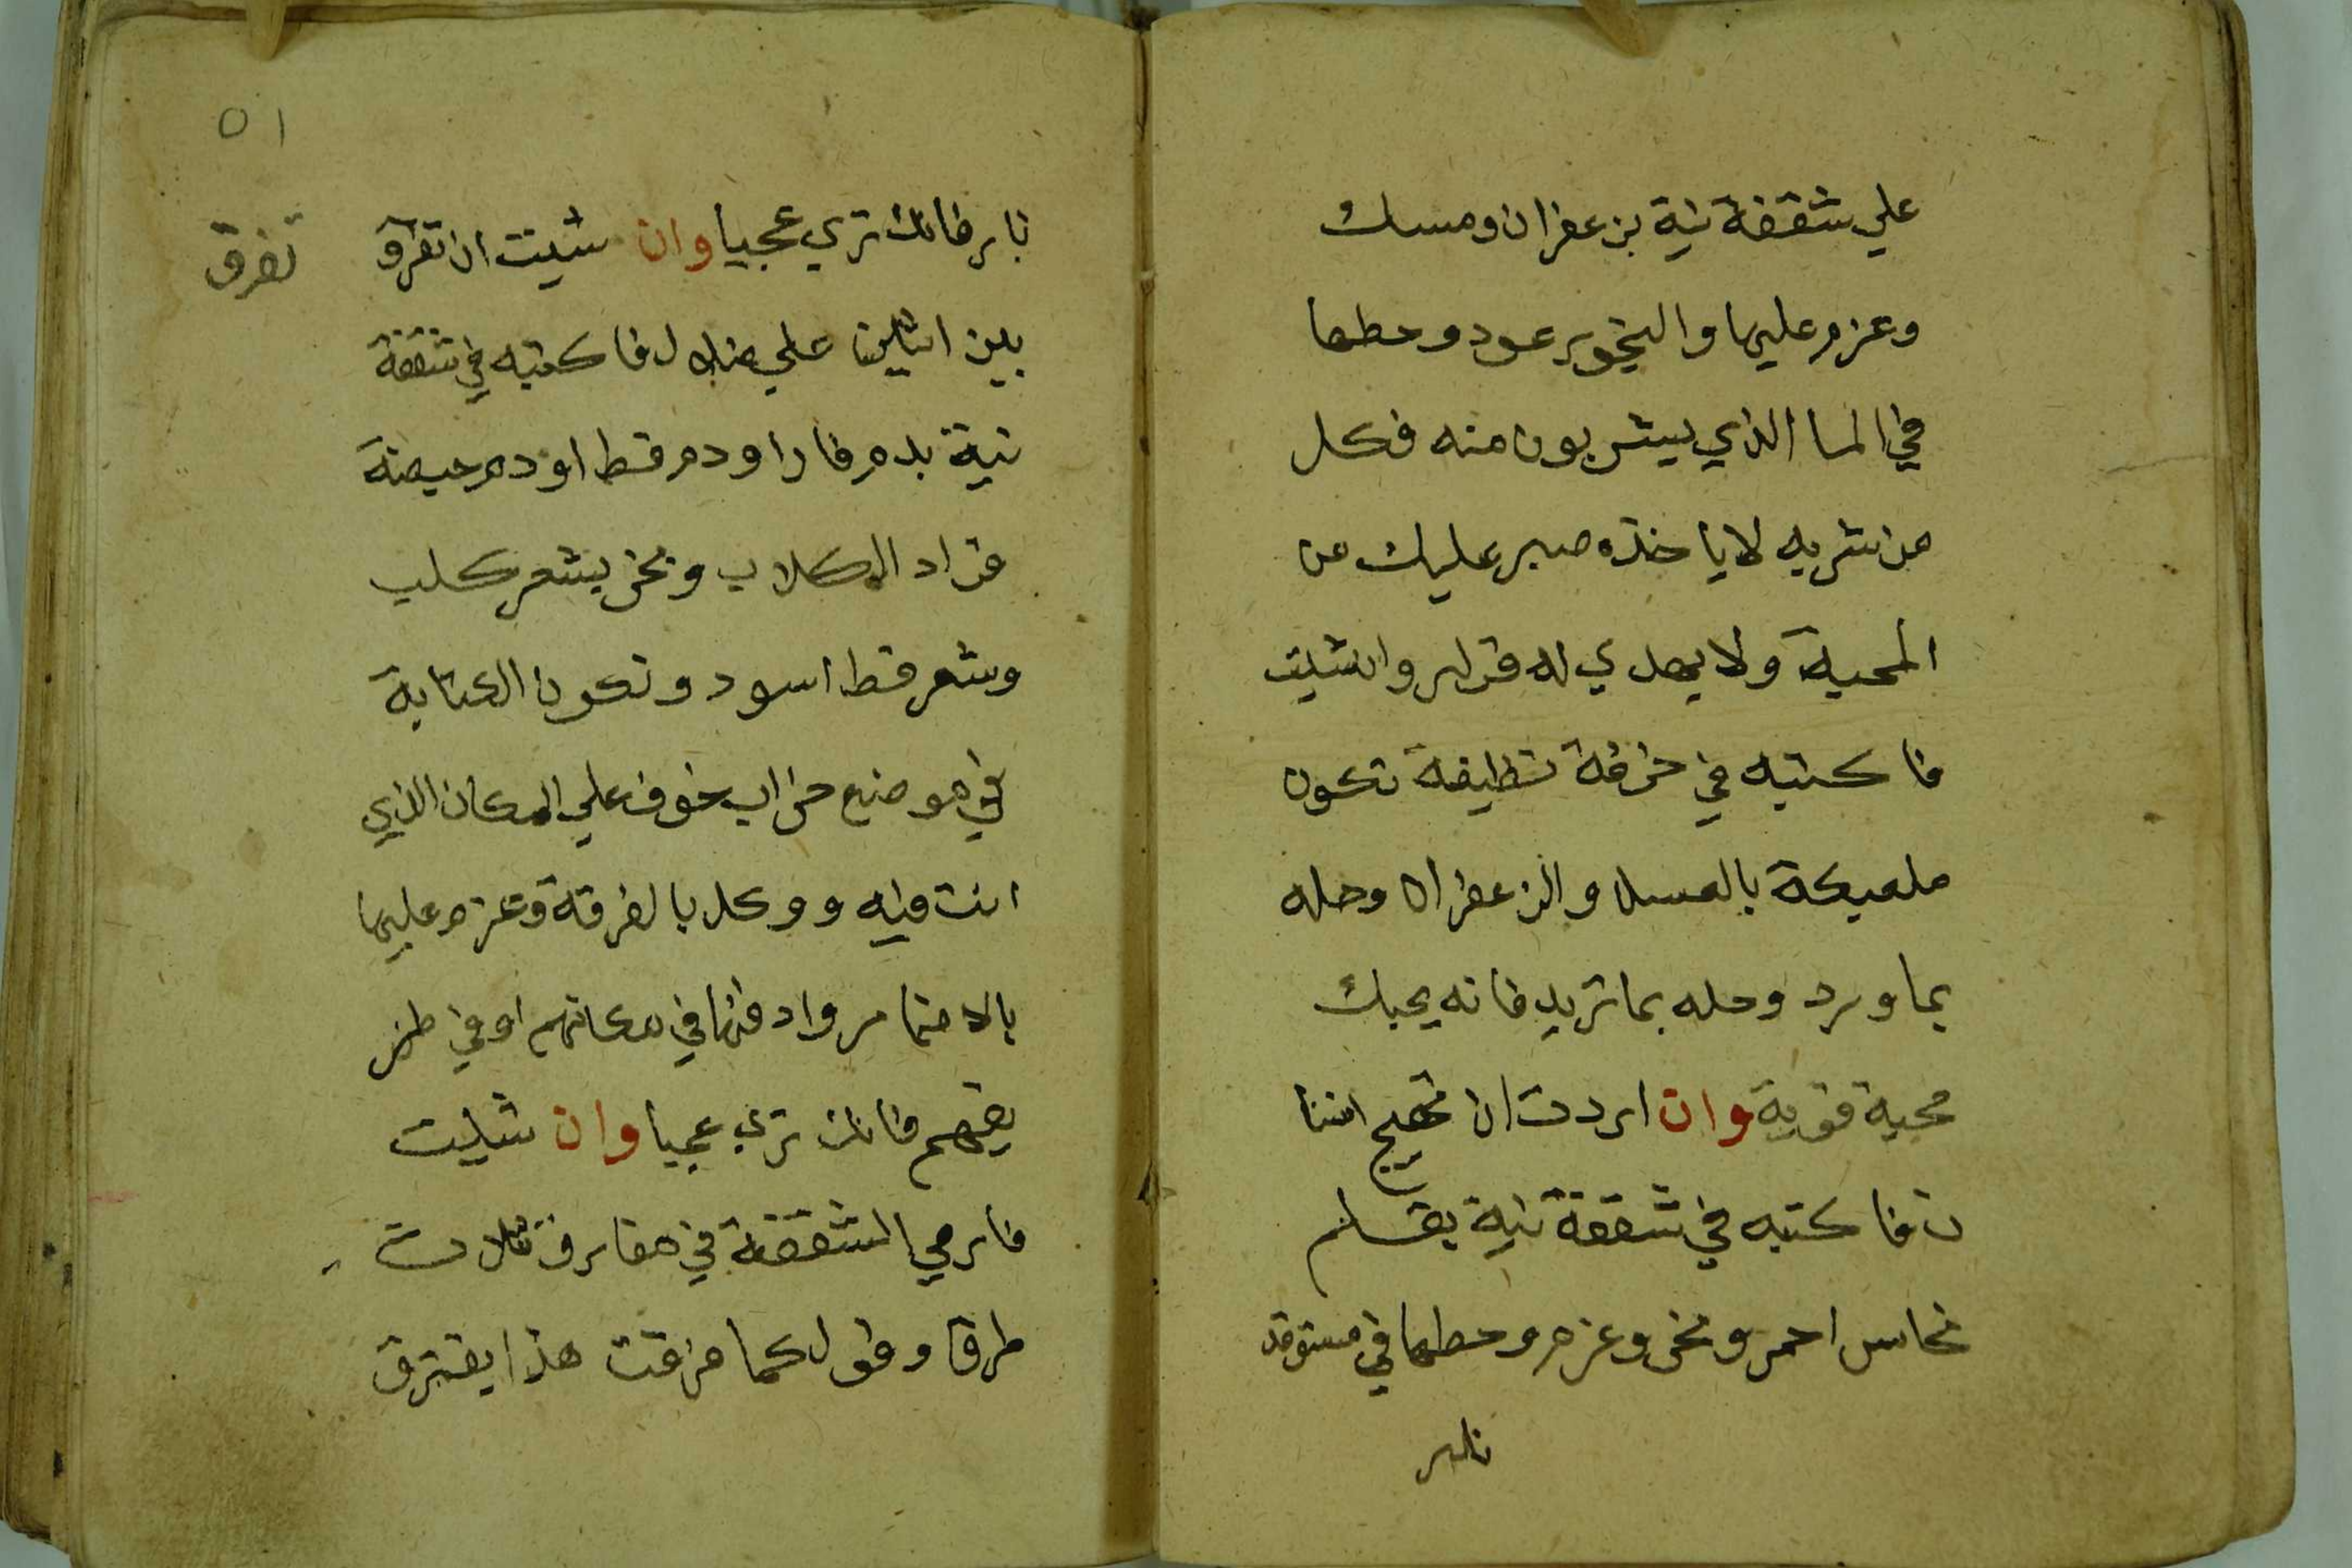 علي شقفة نية بزعفران ومسك
وعزم عليها والبخور عود وحطها
في الما الذي يشربون منه فكل
من شربه لا ياخذه صبر عليك من
المحبة ولا يهدي له قرار وان شيت
فاكتبه في خرقة نظيفة تكون
ملعبكة بالعسل والزعفران وحله
بماورد وحله بما تريد فانه يحبك
محبة قوية وان اردت ان تهيج انسا
ن فاكتبه في شقفة نية بقلم
نحاس احمر وبخر وعزم وحطها في مستوقد
نار
٥١
نار فانك تري عجبا وان شيت ان تفرق
تفرق
بين اثنين علي ضلال فاكتبه في شقفة
نية بدم فار او دم قط او دم حيضة
قراد الكلاب وبخر بشعر كلب
وشعر قط اسود وتكون الكتابة
في موضع خراب خوف علي المكان الذي
انت فيه ووكل بالفرقة وعزم عليها
بالاقسام وادفنها في مكانهم او في طر
يقهم فانك تري عجبا وان شيت
فارمي الشقفة في مفارق ثلاث
طرق وقول كما فرقت هذا يفترق